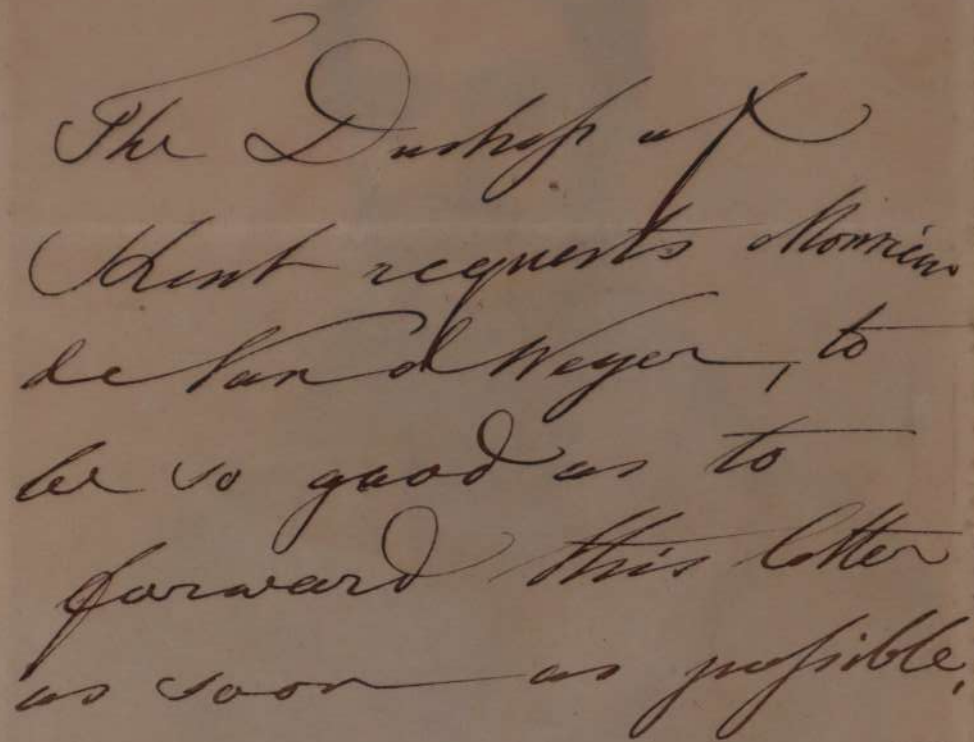 The Duchess of
Kent requests Monsieur
de Van d Weyer, to
be so good as to
forward this letter
as soon as possible,